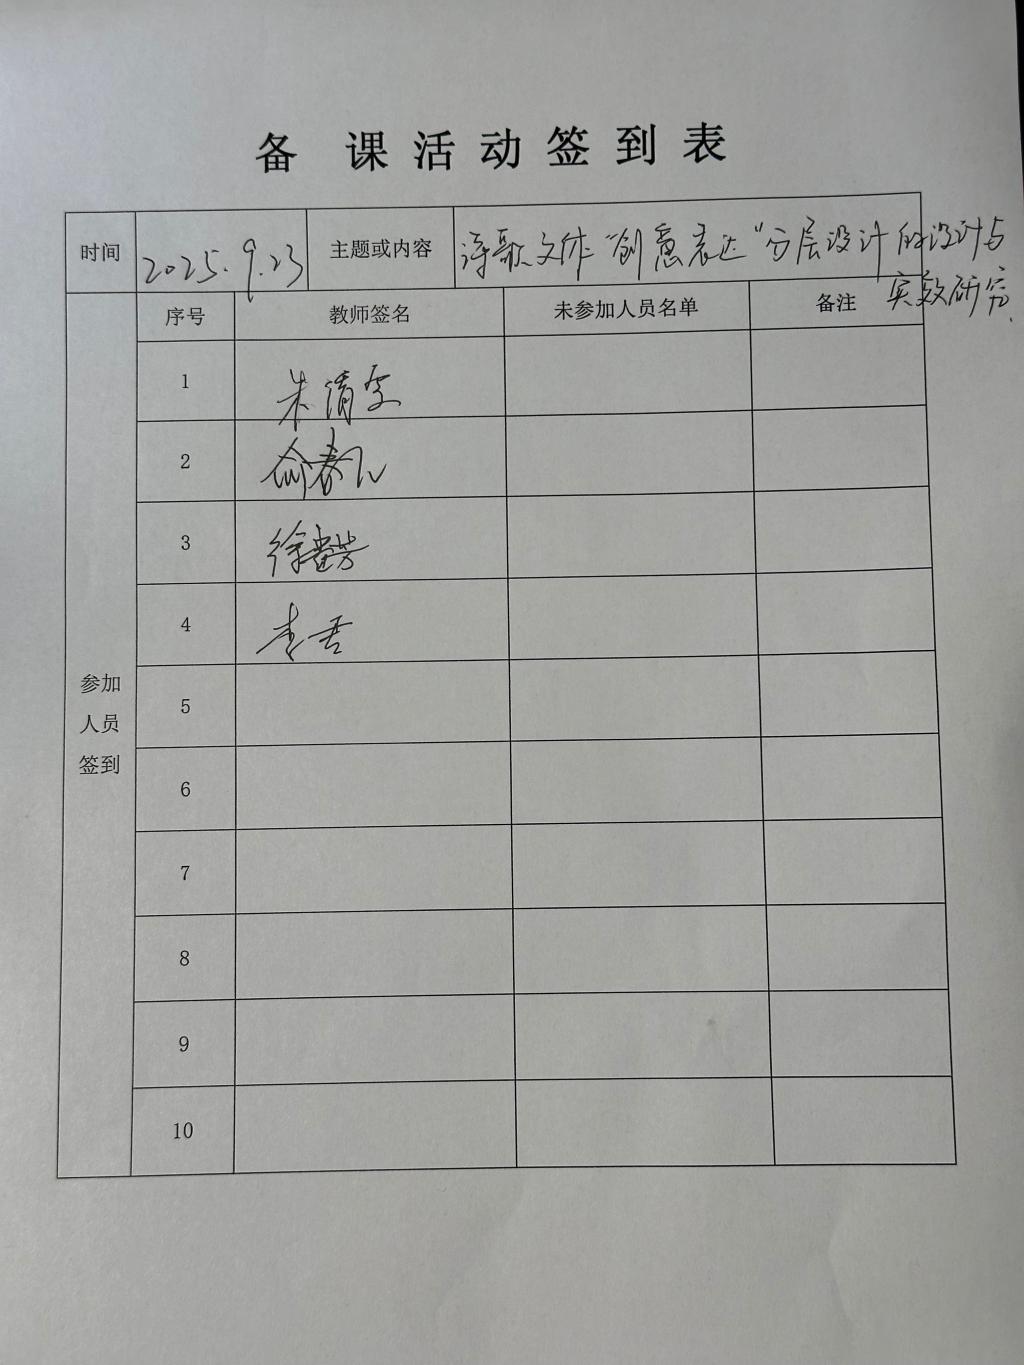 备 课 活 动 签 到 表
时间 2025.9.23 主题或内容 诗歌文作"创意表达"分层设计的设计与
实效研究
序号 教师签名 未参加人员名单 备注
1 朱清
2 俞春
3 徐芳
4 李君
5
6
7
8
9
10
参加
人员
签到